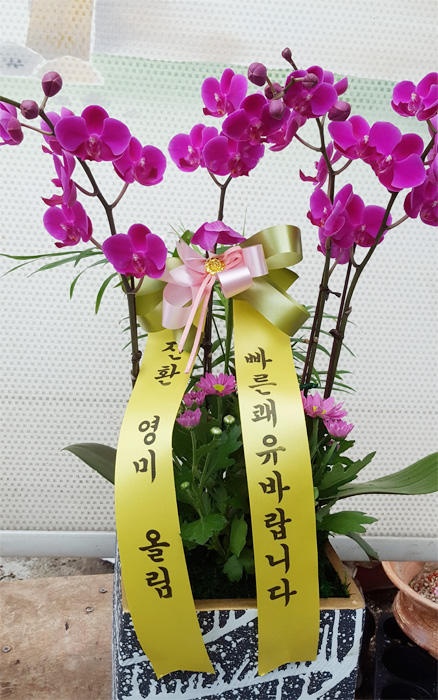 빠른쾌유바랍니다
진환
영미 올림